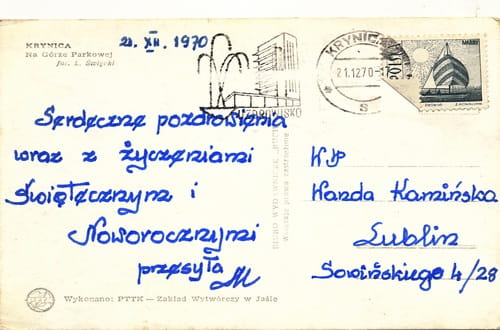 KRYNICA
Na Górze Parkowej
fot. L. Święcki
21. XII. 1970
KRYNICA
21.12.70-17
S
UZDROWISKO
Serdeczne pozdrowienia
wraz z życzeniami
świętecznymi i
Noworocznymi
przesyła M
BIURO WYDAWNICZE „RUCH”
Wszelkie prawa zastrzeżone
WP
Wanda Kamińska
Lublin
Sowińskiego 4/28
Wykonano: PTTK — Zakład Wytwórczy w Jaśle